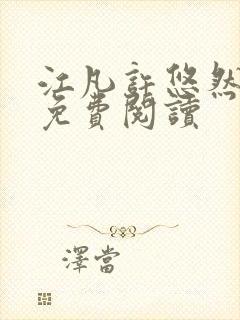 江凡許悠然
免費閱讀
澤當